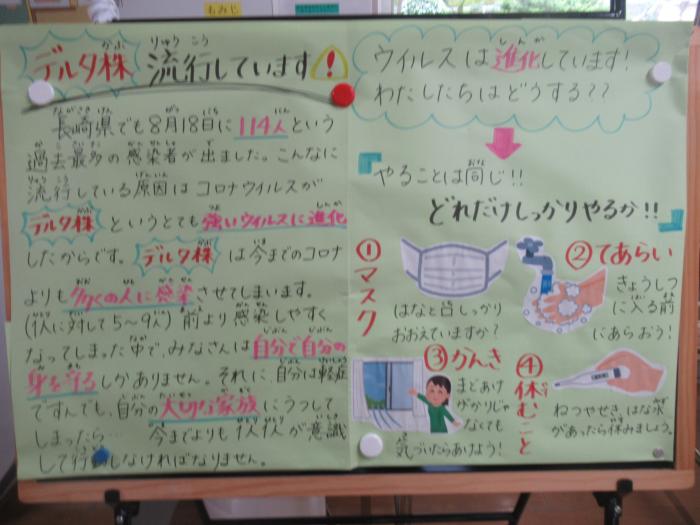 もみじ
デルタ株 流行しています!
長崎県でも8月18日に114人という
過去最多の感染者が出ました。こんなに
流行している原因はコロナウイルスが
デルタ株というとても強いウイルスに進化
したからです。デルタ株は今までのコロナ
よりも多くの人に感染させてしまいます。
(1人に対して5〜9人)前より感染しやすく
なってしまった中で、みなさんは自分で自分の
身を守るしかありません。それに、自分は軽症
ですんでも、自分の大切な家族にうつして
しまったら… 今までよりも1人1人が意識
して行動しなければなりません。
ウイルスは進化しています!
わたしたちはどうする??
やることは同じ!!
どれだけしっかりやるか!!
①マスク
はなと口しっかり
おおえていますか?
②てあらい
きょうしつ
に入る前
にあらおう!
③かんき
まどあけ
がかりじゃ
なくても
気づいたらあけよう!
④休むこと
ねつやせき、はな水
があったら休みましょう。